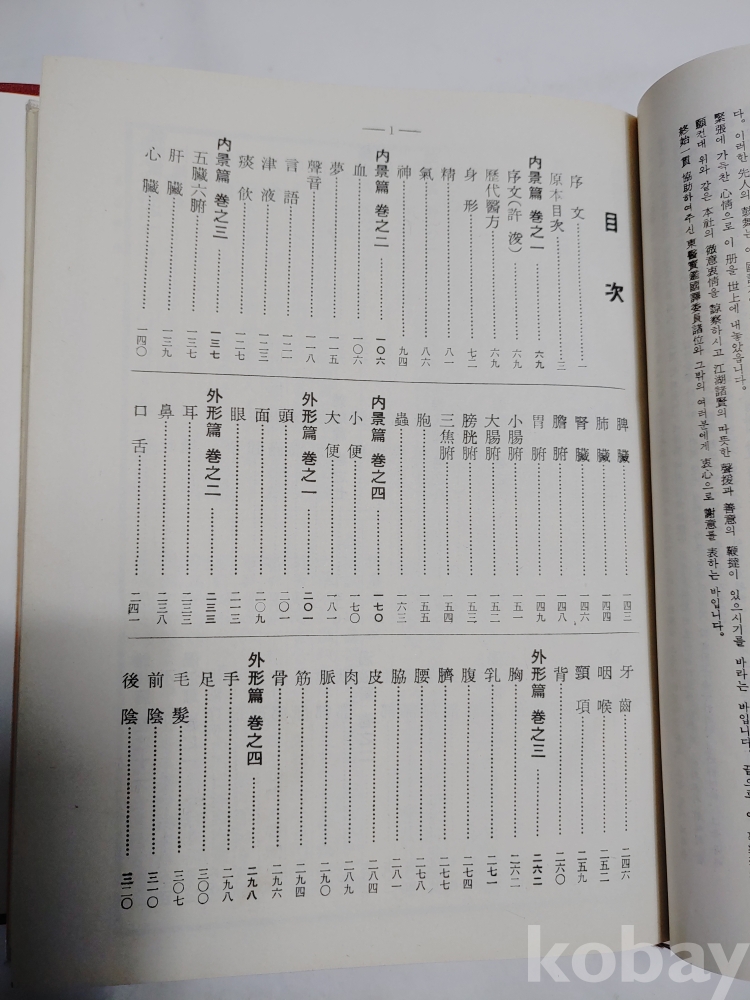 다. 이러한 先人의 鼓舞는 이
緊張에 가득찬 心情으로 이 册을 世上에 내놓았읍니다.
顧컨대 위와 같은 本社의 微意衷情을 諒察하시고 江湖諸賢의 따뜻한 聲援과 善意의 鞭撻이 있으시기를 바라는 바입니다. 끝으로 이
終始一貫 協助하여주신 東醫寶鑑國譯委員諸位와 그밖의 여러분에게 衷心으로 謝意를 表하는 바입니다.
— 1 —
目次
序文……一
原本目次……三
内景篇 卷之一……六九
序文(許浚)……六九
歷代醫方……六九
身形……七二
精……八一
氣……八六
神……九四
内景篇 卷之二……一〇六
血……一〇六
夢……一一五
聲音……一一八
言語……一二一
津液……一二三
痰飮……一二七
内景篇 卷之三……一三七
五臟六腑……一三七
肝臟……一三九
心臟……一四〇
脾臟……一四三
肺臟……一四四
腎臟……一四六
膽腑……一四八
胃腑……一四九
小腸腑……一五一
大腸腑……一五二
膀胱腑……一五三
三焦腑……一五四
胞……一五五
蟲……一六三
内景篇 卷之四……一七〇
小便……一七〇
大便……一八一
外形篇 卷之一……二〇一
頭……二〇一
面……二〇九
眼……二一三
外形篇 卷之二……二三三
耳……二三三
鼻……二三八
口舌……二四一
牙齒……二四六
咽喉……二五二
頸項……二五九
背……二六〇
外形篇 卷之三……二六二
胸……二六二
乳……二七一
腹……二七四
臍……二七七
腰……二七八
脇……二八一
皮……二八四
肉……二八九
脈……二九〇
筋……二九四
骨……二九六
外形篇 卷之四……二九八
手……二九八
足……三〇〇
毛髮……三〇七
前陰……三一〇
後陰……三二〇
kobay